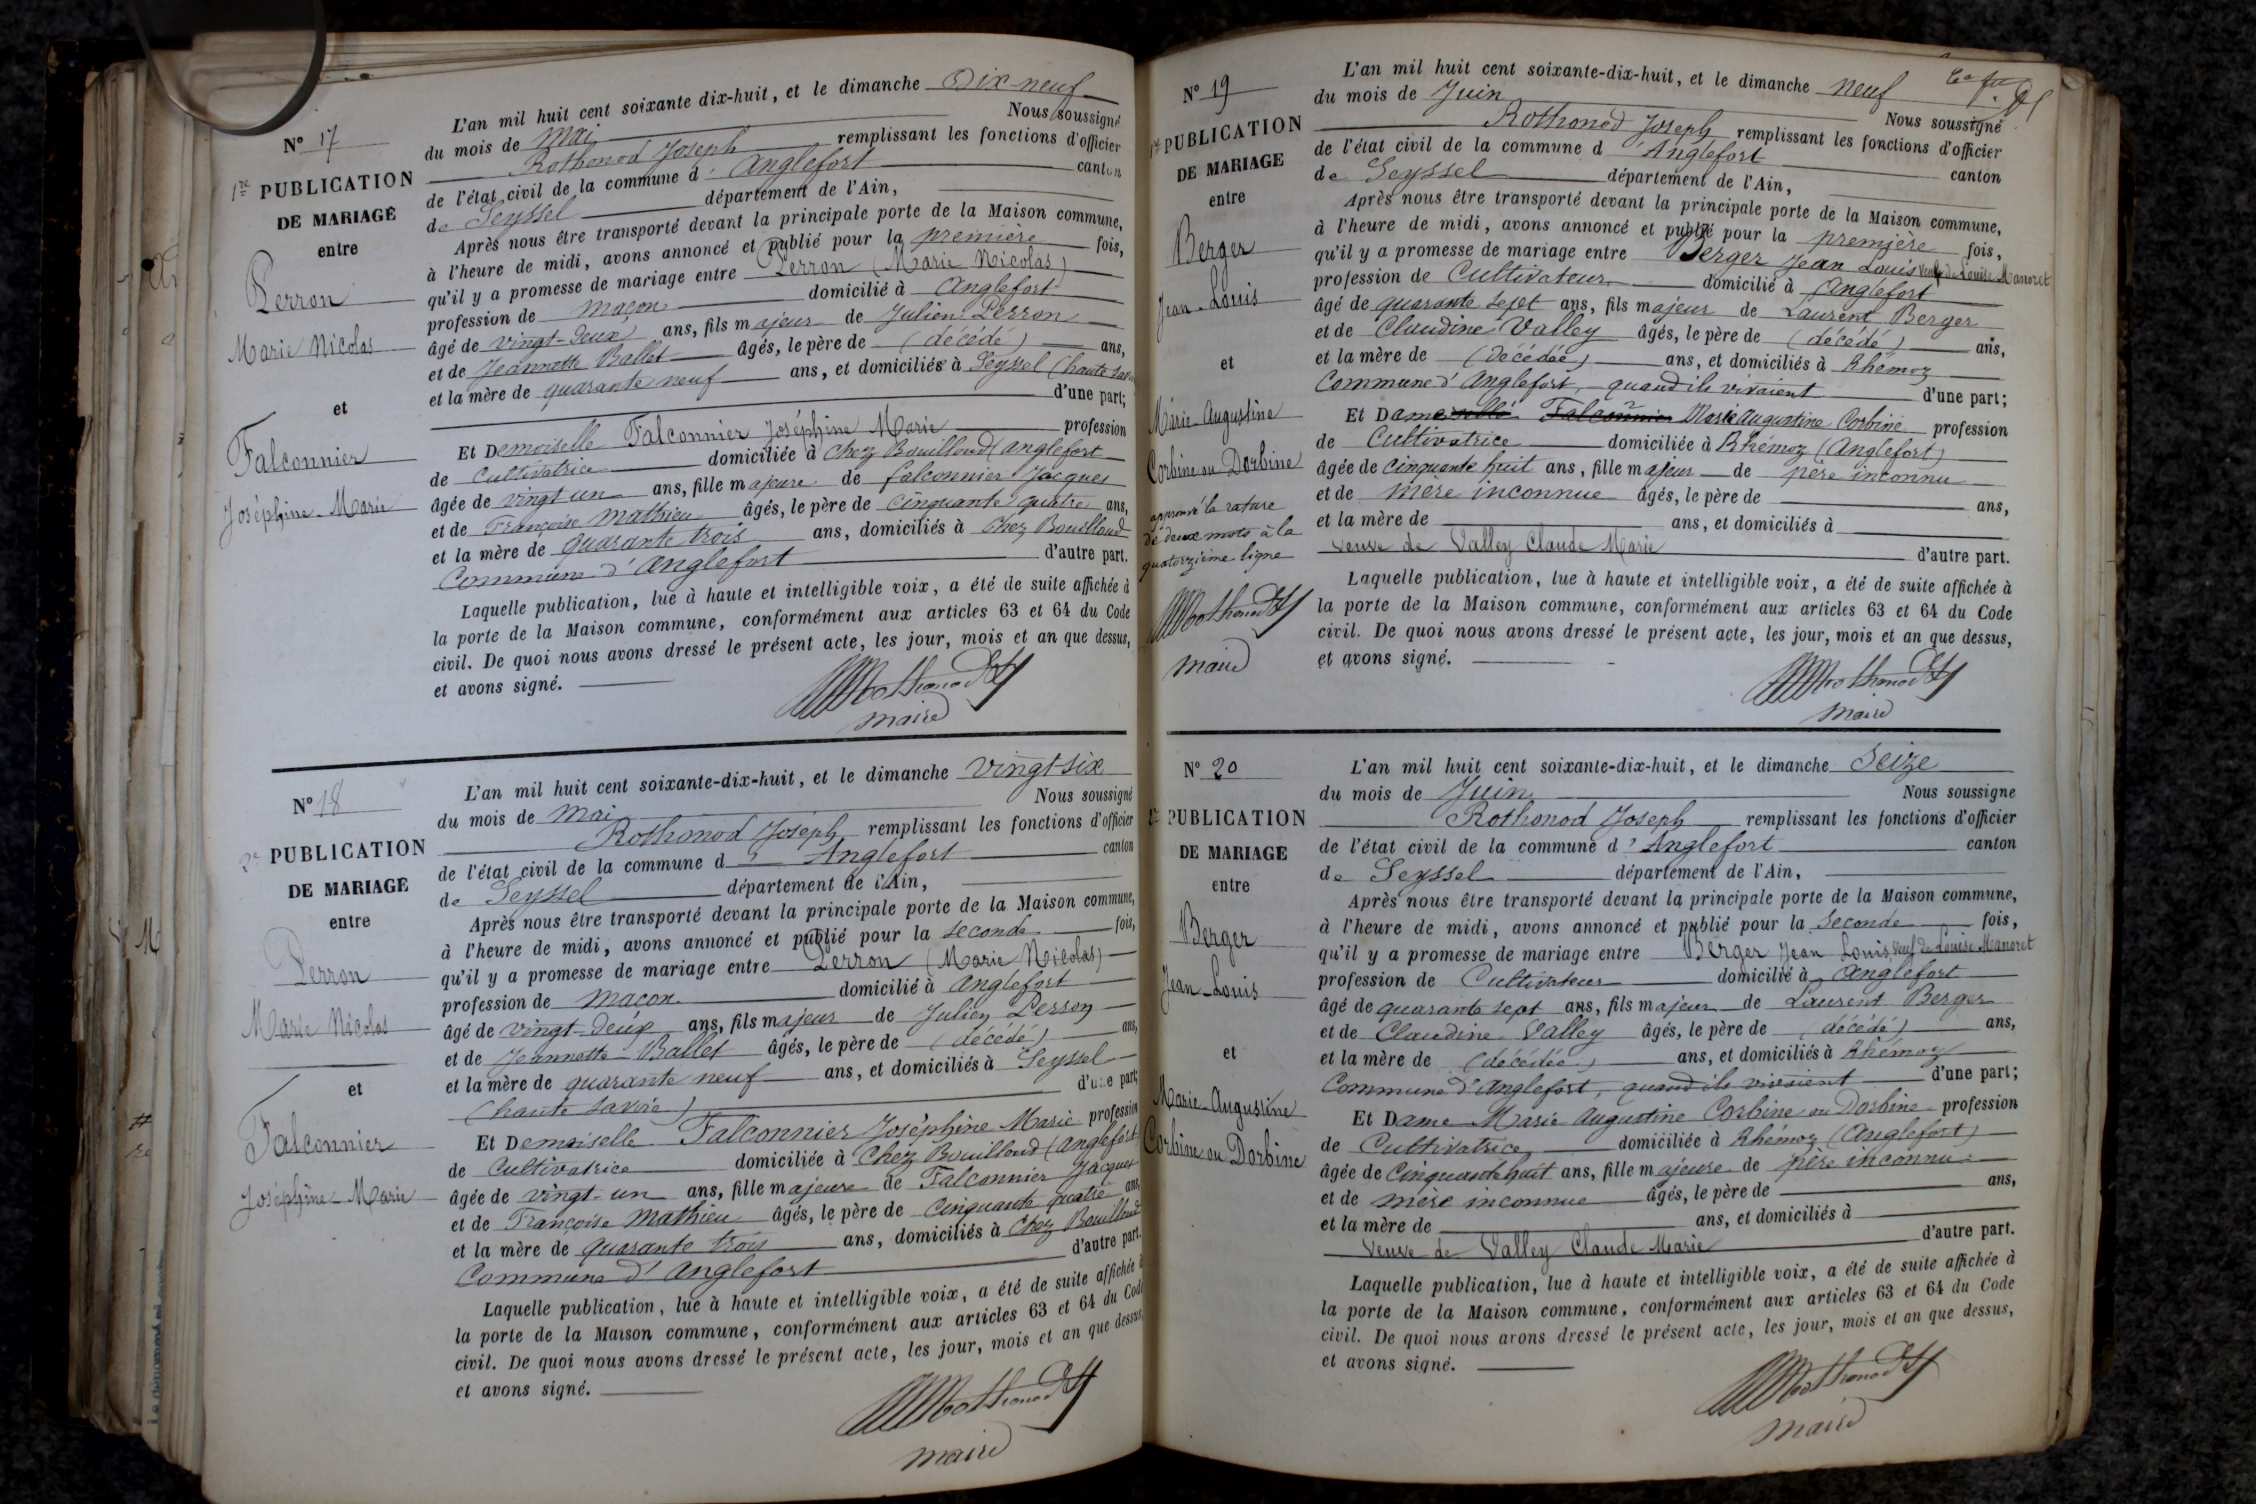 N° 17
1re PUBLICATION
DE MARIAGE
entre
Perron
Marie Nicolas
et
Falconnier
Joséphine Marie
L'an mil huit cent soixante dix-huit, et le dimanche Dix-neuf
du mois de Mai Nous soussigné
Rothonod Joseph remplissant les fonctions d'officier
de l'état civil de la commune d'Anglefort canton
de Seyssel département de l'Ain,
Après nous être transporté devant la principale porte de la Maison commune,
à l'heure de midi, avons annoncé et publié pour la première fois,
qu'il y a promesse de mariage entre Perron (Marie Nicolas)
profession de maçon domicilié à Anglefort
âgé de vingt-deux ans, fils majeur de Julien Perron
et de Jeannette Ballet âgés, le père de (décédé) ans,
et la mère de quarante neuf ans, et domiciliés à Seyssel (haute Savoie
d'une part;
Et Demoiselle Falconnier Joséphine Marie profession
de Cultivatrice domiciliée à Chez Bouilloud (Anglefort
âgée de vingt un ans, fille majeure de falconnier Jacques
et de Françoise Mathieu âgés, le père de cinquante quatre ans,
et la mère de quarante trois ans, domiciliés à Chez Bouilloud
Commune d'Anglefort d'autre part.
Laquelle publication, lue à haute et intelligible voix, a été de suite affichée à
la porte de la Maison commune, conformément aux articles 63 et 64 du Code
civil. De quoi nous avons dressé le présent acte, les jour, mois et an que dessus,
et avons signé.
Rothonod
maire
N° 18
2e PUBLICATION
DE MARIAGE
entre
Perron
Marie Nicolas
et
Falconnier
Joséphine Marie
L'an mil huit cent soixante-dix-huit, et le dimanche vingt-six
du mois de Mai Nous soussigné
Rothonod Joseph remplissant les fonctions d'officier
de l'état civil de la commune d'Anglefort canton
de Seyssel département de l'Ain,
Après nous être transporté devant la principale porte de la Maison commune,
à l'heure de midi, avons annoncé et publié pour la seconde fois,
qu'il y a promesse de mariage entre Perron (Marie Nicolas)
profession de maçon domicilié à Anglefort
âgé de vingt-deux ans, fils majeur de Julien Perron
et de Jeannette Ballet âgés, le père de (décédé) ans,
et la mère de quarante neuf ans, et domiciliés à Seyssel
(haute Savoie) d'une part;
Et Demoiselle Falconnier Joséphine Marie profession
de Cultivatrice domiciliée à Chez Bouilloud (Anglefort
âgée de vingt-un ans, fille majeure de Falconnier Jacques
et de Françoise Mathieu âgés, le père de cinquante quatre ans,
et la mère de quarante trois ans, domiciliés à Chez Bouilloud
Commune d'Anglefort d'autre part.
Laquelle publication, lue à haute et intelligible voix, a été de suite affichée à
la porte de la Maison commune, conformément aux articles 63 et 64 du Code
civil. De quoi nous avons dressé le présent acte, les jour, mois et an que dessus,
et avons signé.
Rothonod
maire
N° 19
1re PUBLICATION
DE MARIAGE
entre
Berger
Jean-Louis
et
Marie-Augustine
Corbine ou Dorbine
approuvé la rature
de deux mots à la
quatorzième ligne
Rothonod
maire
L'an mil huit cent soixante-dix-huit, et le dimanche neuf
du mois de Juin Nous soussigné
Rothonod Joseph remplissant les fonctions d'officier
de l'état civil de la commune d'Anglefort canton
de Seyssel département de l'Ain,
Après nous être transporté devant la principale porte de la Maison commune,
à l'heure de midi, avons annoncé et publié pour la première fois,
qu'il y a promesse de mariage entre Berger Jean Louis veuf de Louise Manoret
profession de Cultivateur domicilié à Anglefort
âgé de quarante sept ans, fils majeur de Laurent Berger
et de Claudine Valley âgés, le père de (décédé) ans,
et la mère de (décédée) ans, et domiciliés à Rhémoz
Commune d'Anglefort, quand ils vivaient d'une part;
Et Damoiselle Falconnier Marie Augustine Corbine profession
de Cultivatrice domiciliée à Rhémoz (Anglefort)
âgée de cinquante huit ans, fille majeur de père inconnu
et de mère inconnue âgés, le père de ans,
et la mère de ans, et domiciliés à
veuve de Valley Claude Marie d'autre part.
Laquelle publication, lue à haute et intelligible voix, a été de suite affichée à
la porte de la Maison commune, conformément aux articles 63 et 64 du Code
civil. De quoi nous avons dressé le présent acte, les jour, mois et an que dessus,
et avons signé.
Rothonod
maire
N° 20
PUBLICATION
DE MARIAGE
entre
Berger
Jean-Louis
et
Marie-Augustine
Corbine ou Dorbine
L'an mil huit cent soixante-dix-huit, et le dimanche Seize
du mois de Juin Nous soussigne
Rothonod Joseph remplissant les fonctions d'officier
de l'état civil de la commune d'Anglefort canton
de Seyssel département de l'Ain,
Après nous être transporté devant la principale porte de la Maison commune,
à l'heure de midi, avons annoncé et publié pour la seconde fois,
qu'il y a promesse de mariage entre Berger Jean Louis veuf de Louise Manoret
profession de Cultivateur domicilié à Anglefort
âgé de quarante sept ans, fils majeur de Laurent Berger
et de Claudine Valley âgés, le père de (décédé) ans,
et la mère de (décédée) ans, et domiciliés à Rhémoz
Commune d'Anglefort, quand ils vivaient d'une part;
Et Dame Marie Augustine Corbine ou Dorbine profession
de Cultivatrice domiciliée à Rhémoz (Anglefort)
âgée de Cinquante huit ans, fille majeure de père inconnu
et de mère inconnue âgés, le père de ans,
et la mère de ans, et domiciliés à
veuve de Valley Claude Marie d'autre part.
Laquelle publication, lue à haute et intelligible voix, a été de suite affichée à
la porte de la Maison commune, conformément aux articles 63 et 64 du Code
civil. De quoi nous avons dressé le présent acte, les jour, mois et an que dessus,
et avons signé.
Rothonod
maire